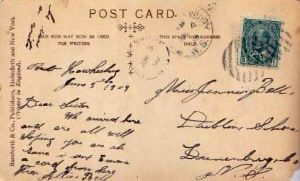 POST CARD.
THIS BOX MAY NOW BE USED
FOR WRITING
THIS SPACE
ADDRESS
ONLY.
Bamforth & Co., Publishers, Holmfirth and New York.
(Printed in England).
Port Hawkesbury
June 5 1909
Dear Sister
We arrived here
and are all well
hoping you are
the same
Miss Jennie Bell
Dublin Shore
Lunenburg Co
N.S.